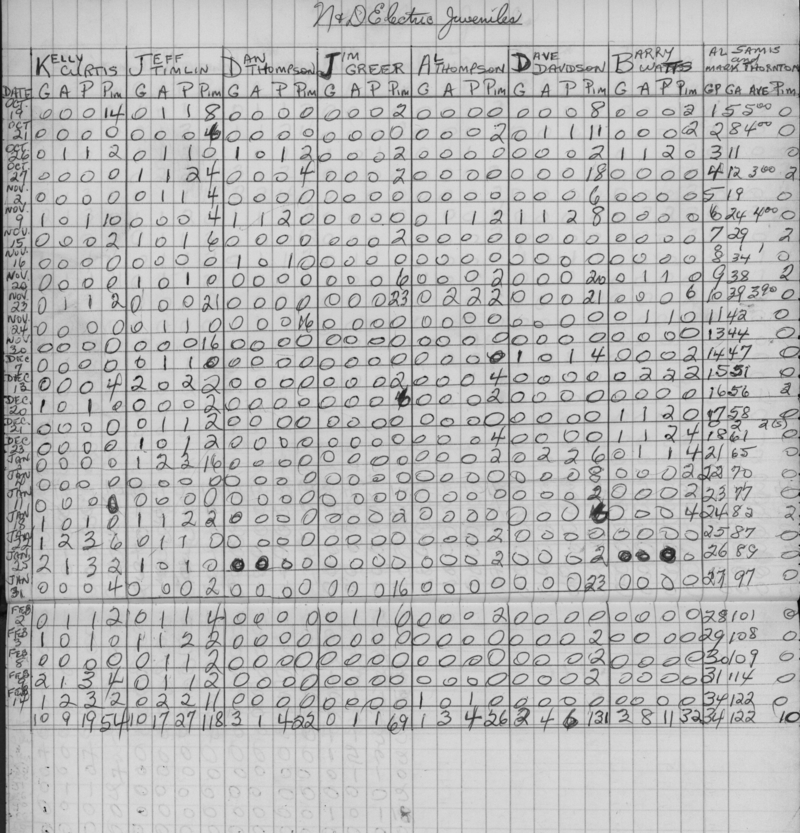 N & D Electric Juveniles
KELLY CURTIS JEFF TIMLIN DAN THOMPSON JIM GREER AL THOMPSON DAVE DAVIDSON BARRY WATTS AL SAMIS and MARK THORNTON
DATE G A P Pim G A P Pim G A P Pim G A P Pim G A P Pim G A P Pim G A P Pim GP GA AVE Pim
OCT. 19 0 0 0 14 0 1 1 8 0 0 0 0 0 0 0 2 0 0 0 0 0 0 0 8 0 0 0 2 1 5 5.00 0
OCT 21 0 0 0 0 0 0 0 0 0 0 0 0 0 0 0 0 0 0 2 0 1 1 11 0 0 0 2 2 8 4.00 0
OCT 26 0 1 1 2 0 1 1 0 1 0 1 2 0 0 0 2 0 0 0 0 0 0 0 2 1 1 2 0 3 11 0
OCT 27 0 0 0 0 1 1 2 4 0 0 0 4 0 0 0 2 0 0 0 0 0 0 0 18 0 0 0 0 4 12 3.00 2
NOV. 2 0 0 0 0 0 1 1 4 0 0 0 0 0 0 0 0 0 0 0 0 0 0 0 6 0 0 0 0 5 19 0
NOV 1 0 1 10 0 0 0 4 1 1 2 0 0 0 0 0 0 1 1 2 1 1 2 8 0 0 0 0 6 24 4.00 0
NOV. 15 0 0 0 2 1 0 1 6 0 0 0 0 0 0 0 2 0 0 0 0 0 0 0 0 0 0 0 0 7 29 2
NOV. 16 0 0 0 0 0 0 0 0 1 0 1 0 0 0 0 0 0 0 0 0 0 0 0 0 0 0 0 0 8 34 0
NOV 20 0 0 0 0 1 0 1 0 0 0 0 0 0 0 0 6 0 0 0 2 0 0 0 20 0 1 1 0 9 38 2
NOV. 23 0 1 1 2 0 0 0 21 0 0 0 0 0 0 0 23 0 2 2 2 0 0 0 21 0 0 0 6 10 39 3.90 0
NOV 24 0 0 0 0 0 1 1 0 0 0 0 16 0 0 0 0 0 0 0 0 0 0 0 0 0 1 1 0 11 42 0
NOV 30 0 0 0 0 0 0 0 16 0 0 0 0 0 0 0 0 0 0 0 0 0 0 0 0 0 0 0 0 13 44 0
DEC 7 0 0 0 0 0 1 1 0 0 0 0 0 0 0 0 0 0 0 0 0 1 0 1 4 0 0 0 2 14 47 0
DEC 13 0 0 0 4 2 0 2 2 0 0 0 0 0 0 0 2 0 0 0 4 0 0 0 0 0 2 2 2 15 51 0
DEC. 20 1 0 1 0 0 0 0 2 0 0 0 0 0 0 0 0 0 0 2 0 0 0 0 0 0 0 0 16 56 2
DEC. 21 0 0 0 0 0 1 1 2 0 0 0 0 0 0 0 0 0 0 0 0 0 0 0 0 1 1 2 0 17 58 0
DEC 23 0 0 0 0 1 0 1 2 0 0 0 0 0 0 0 0 0 0 0 4 0 0 0 0 1 1 2 4 18 61 0
JAN 0 0 0 0 1 2 3 16 0 0 0 0 0 0 0 0 0 0 0 2 0 2 2 6 0 1 1 4 21 65 0
JAN 0 0 0 0 0 0 0 0 0 0 0 0 0 0 0 0 0 0 0 0 0 0 0 8 0 0 0 2 22 70 0
JAN 11 0 0 0 0 0 0 0 0 0 0 0 0 0 0 0 0 0 0 0 0 0 0 2 0 0 0 2 23 77 0
JAN 1 0 1 0 1 1 2 2 0 0 0 0 0 0 0 2 0 0 0 0 0 0 0 0 0 0 4 24 82 2
JAN 1 2 3 6 0 1 1 0 0 0 0 0 0 0 0 0 0 0 0 2 0 0 0 0 0 0 0 0 25 87 0
JAN 25 2 1 3 2 1 0 1 0 0 0 0 0 0 0 0 0 0 2 0 0 0 2 0 26 89 0
JAN 31 0 0 0 4 0 0 0 2 0 0 0 0 0 0 0 16 0 0 0 0 0 0 0 23 0 0 0 0 27 97 0
FEB 2 0 1 1 2 0 1 1 4 0 0 0 0 0 1 1 6 0 0 0 2 0 0 0 0 0 0 0 0 28 101 0
FEB 1 0 1 0 1 1 2 2 0 0 0 0 0 0 0 0 0 0 0 0 0 0 0 2 0 0 0 0 29 108 0
FEB 8 0 0 0 0 0 1 1 2 0 0 0 0 0 0 0 0 0 0 0 0 0 0 0 2 0 0 0 0 30 109 0
FEB 9 2 1 3 4 0 1 1 2 0 0 0 0 0 0 0 0 0 0 0 0 0 0 0 2 0 0 0 0 31 114 0
FEB 14 1 2 3 2 0 2 2 11 0 0 0 0 0 0 0 0 1 0 1 0 0 0 0 0 0 0 0 0 34 122 0
10 9 19 54 10 17 27 118 3 1 4 22 0 1 1 69 1 3 4 26 2 4 6 131 3 8 11 32 34 122 10